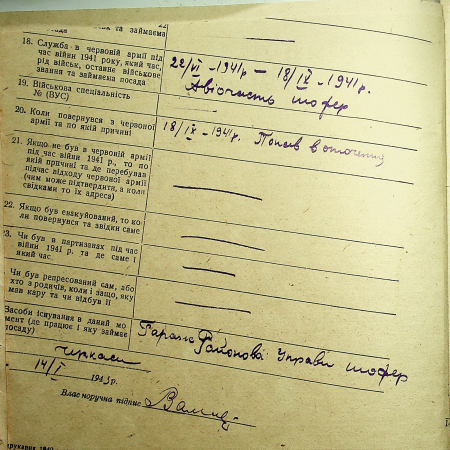 та займаема
18. Служба в червоній армії під
час війни 1941 року, який час,
рід військ, останнє військове
звання та займаєма посада
22/VI -1941р — 18/IX -1941р.
Авіочасть шофер
19. Військова спеціальність
№ (ВУС)
20. Коли повернувся з червоної
армії та по якій причині
18/IX -1941р. Попав в оточення
21. Якщо не був в червоній армії
під час війни 1941 р., то по
якій причині та де перебував
підчас відходу червоної армії
(чим може підтвердити, а коли
свідками то їх адреса)
22. Якщо був евакуйований, то ко-
ли повернувся та звідки саме
23. Чи був в партизанах під час
війни 1941 р. та де саме і
який час.
Чи був репресований сам, або
хто з родичів, коли і защо, яку
мав кару та чи відбув її
Засоби існування в даний мо-
мент (де працює і яку займає
посаду)
Гараж Районова Управи шофер
Черкаси
14/I 1943р.
Влас норучна підпис